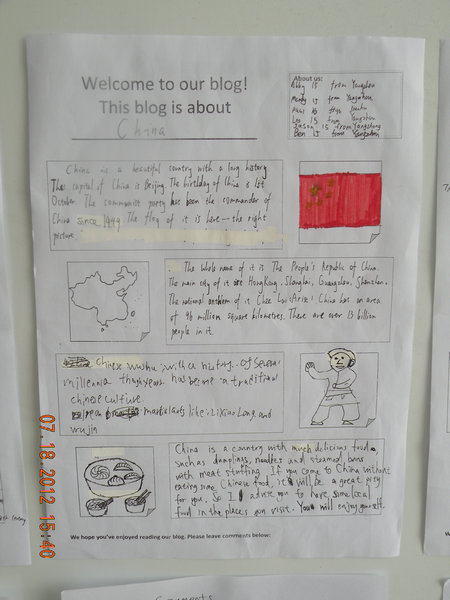 Welcome to our blog!
This blog is about
China
About us:
Abby is from Yangzhou
Mandy is from Yangzhou
is from
Leo is from Yangzhou
Jason is from Yangzhong
Ben is from Yangzhou
China is a beautiful country with a long history
The capital of China is Beijing. The birthday of China is 1st
October. The communist party has been the commander of
China since 1949. The flag of it is here—the right
picture.
The whole name of it is The People's Republic of China.
The main city of it are HongKong, Shanghai, Guangzhou, Shenzhen.
The national anthem of it (Chee Lai:Arise! China has an area
of 96 million square kilometres. There are over 13 billion
people in it.
Chinese wushu with a history of several
millennia thouyears has become a traditional
chinese culture
martialarts like: LiXiao Long and
wujin
China is a country with much delicious food
such as dumplings, noodles and steamed buns
with meat stuffing. If you come to China without
eating some Chinese food, it will be a great pity
for you. So I advise you to have some local
food in the places you visit. You will enjoy yourself.
We hope you've enjoyed reading our blog. Please leave comments below:
07.18.2012 15:40
Comments